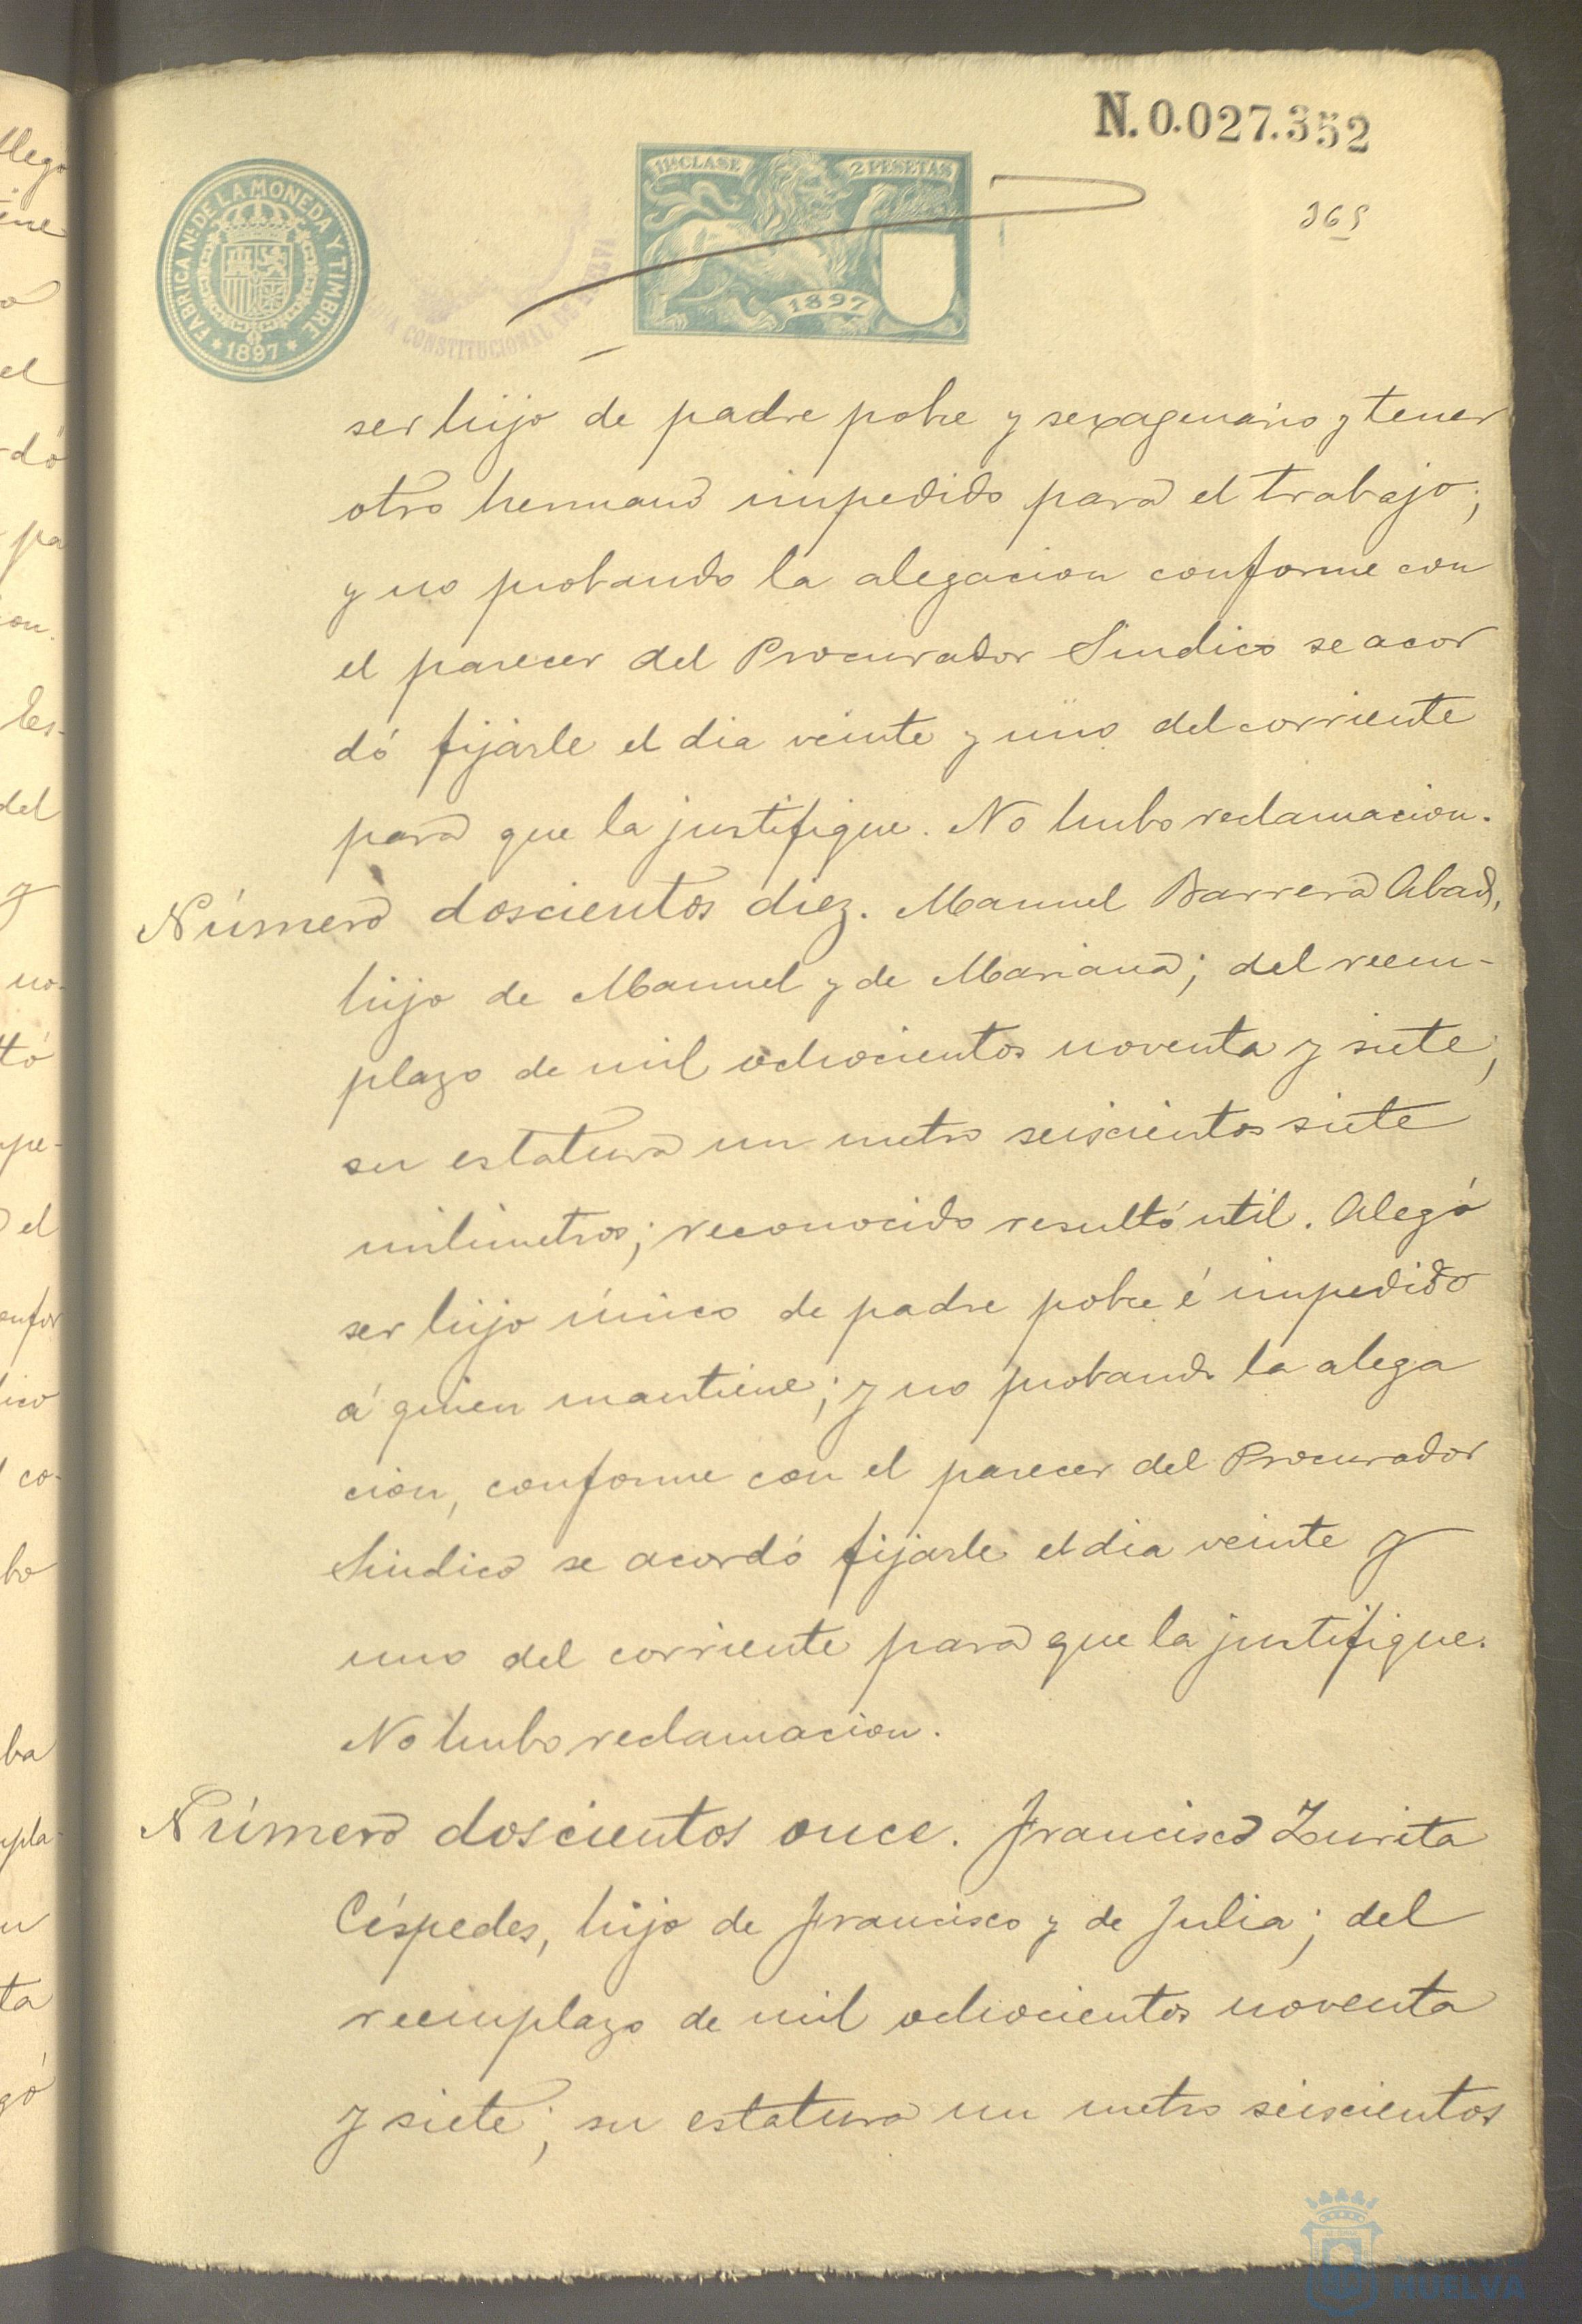 N.0.027.352
365
FABRICA NL. DE LA MONEDA Y TIMBRE
* 1897 *
CONSTITUCIONAL DE HUELVA
11ª CLASE
2 PESETAS
1897
ser hijo de padre pobre y sexagenario y tener
otro hermano impedido para el trabajo;
y no probando la alegacion conforme con
el parecer del Procurador Sindico se acor
dó fijarle el dia veinte y uno del corriente
para que la justifique. No hubo reclamacion.
Número doscientos diez. Manuel Barrera Abad,
hijo de Manuel y de Mariana; del reem-
plazo de mil ochocientos noventa y siete;
su estatura un metro seiscientos siete
milimetros; reconocido resultó util. Alegó
ser hijo único de padre pobre é impedido
á quien mantiene; y no probando la alega
cion, conforme con el parecer del Procurador
Sindico se acordó fijarle el dia veinte y
uno del corriente para que la justifique.
No hubo reclamacion.
Número doscientos once. Francisco Zurita
Céspedes, hijo de Francisco y de Julia; del
reemplazo de mil ochocientos noventa
y siete; su estatura un metro seiscientos
HUELVA